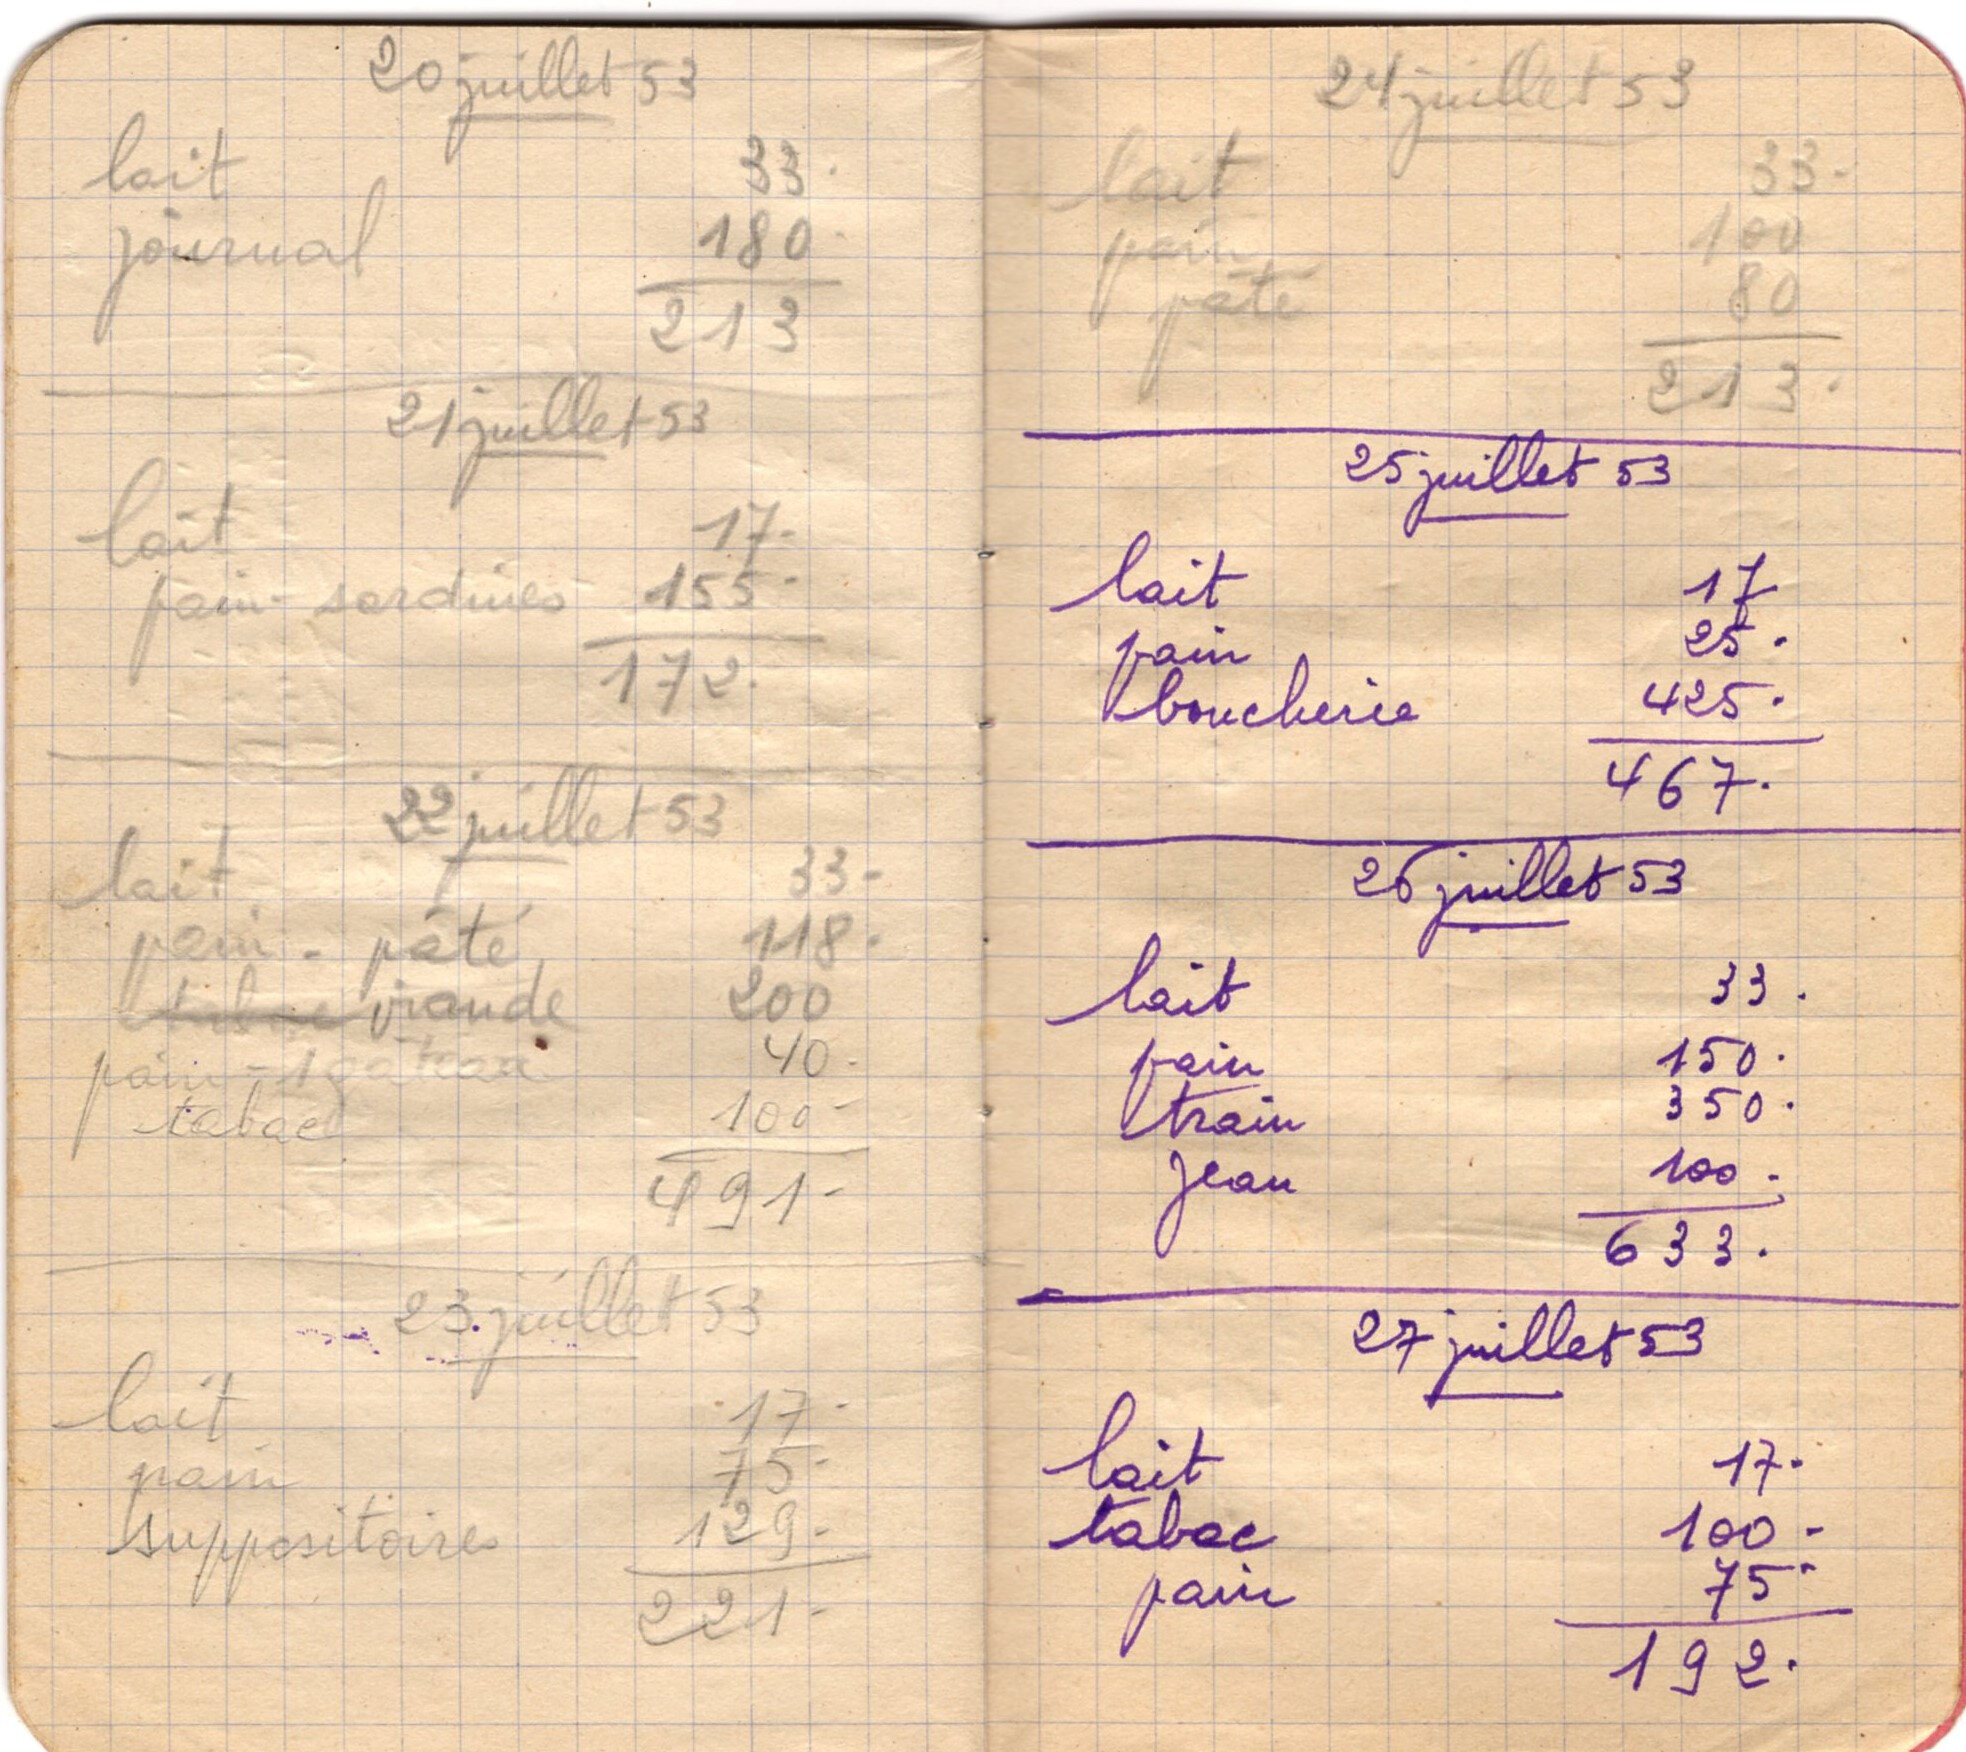 20 juillet 53
lait 33.
journal 180.
213
21 juillet 53
lait 17-
pain - sardines 155.
172.
22 juillet 53
lait 33-
pain - pâté 118.
tabac viande 200
pain - 1 gâteau 40.
tabac 100-
491-
23 juillet 53
lait 17-
pain 75-
suppositoires 129-
221-
24 juillet 53
lait 33-
pain 100
pâté 80
213.
25 juillet 53
lait 17
pain 25.
boucherie 425.
467.
26 juillet 53
lait 33.
pain 150.
train 350.
Jean 100.
633.
27 juillet 53
lait 17.
tabac 100-
pain 75-
192.